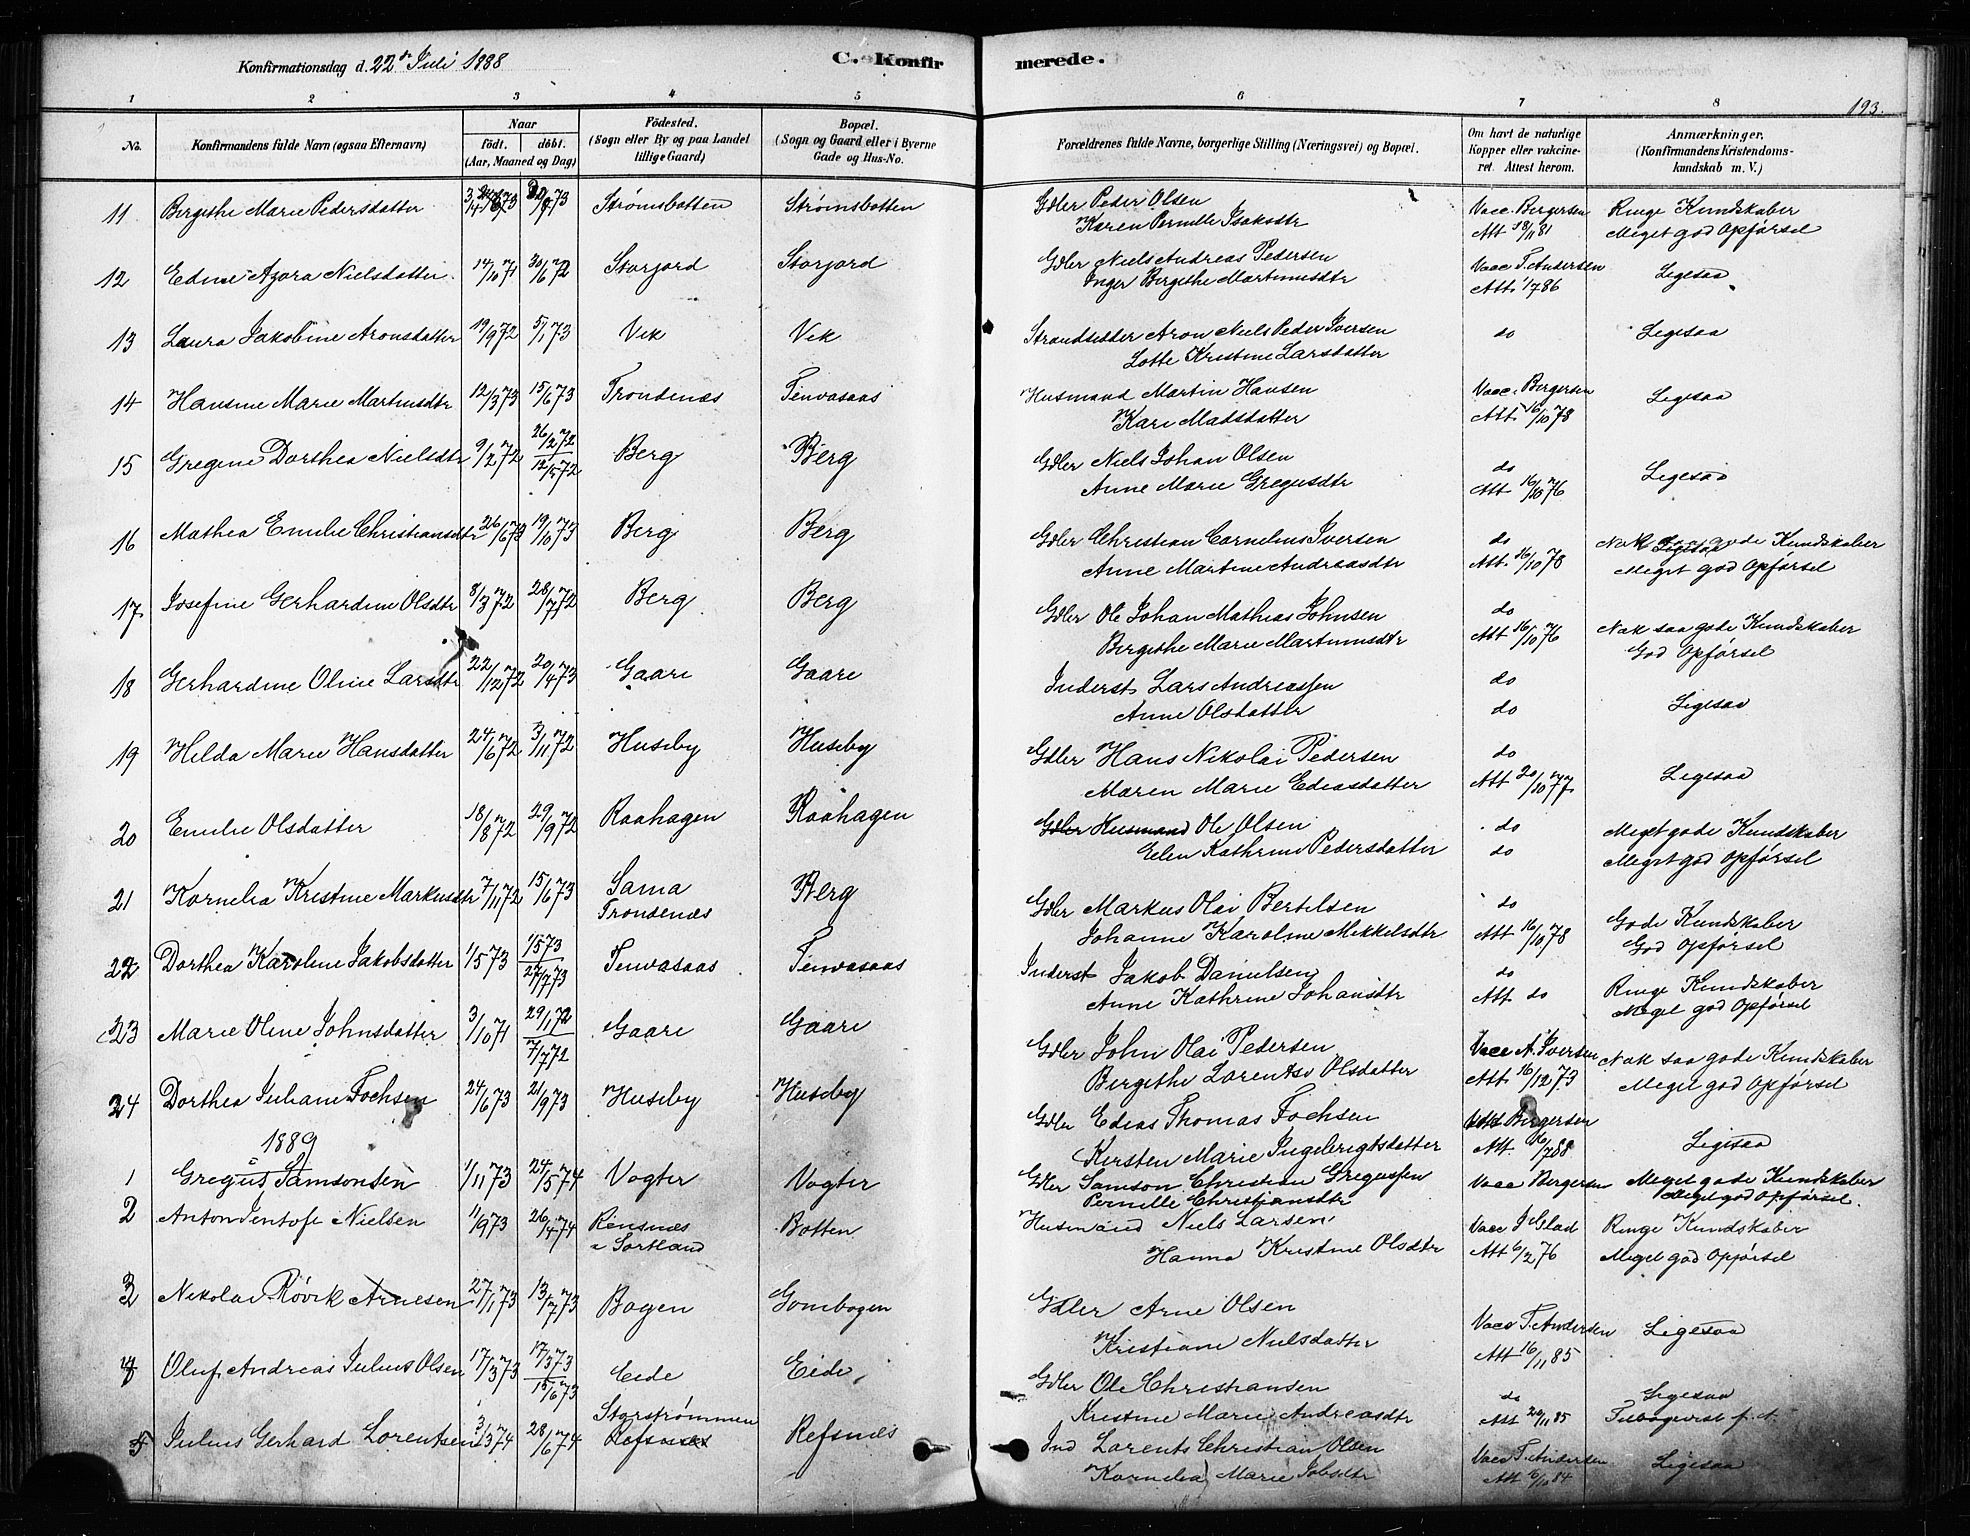 Konfirmationsdag d. 22de Juli 1888
C. Konfirmerede.
193.
1 2 3 4 5 6 7 8
No. Konfirmandens fulde Navn (ogsaa Efternavn) Naar født. døbt. (Aar, Maaned og Dag) Fødested. (Sogn eller By og paa Landet tillige Gaard) Bopæl. (Sogn og Gaard eller i Byerne Gade og Hus-No. Forældrenes fulde Navne, borgerlige Stilling (Næringsvei) og Bopæl. Om havt de naturlige Kopper eller vakcineret. Attest herom. Anmærkninger, (Konfirmandens Kristendomskundskab m. V.)
11 Bergithe Marie Pedersdatter Strømsbotten Strømsbotten Gdler Peder Olsen Vacc. Bergersen Ringe Kundskaber
Karen Pernille Isaksdtr Att 18/11 81 Meget god Opførsel
12 Edine Azora Nielsdatter 14/10 71 30/6 72 Storjord Storjord Gdler Niels Andreas Pedersen Vacc T. Andersen Ligesaa
Inger Bergithe Martinusdtr Att 1/7 86
13 Laura Jakobine Aronsdatter 19/9 72 5/1 73 Vik Vik Strandsidder Aron Niels Peder Iversen do Ligesaa
Lotte Kristine Larsdatter
14 Hansine Marie Martinsdtr 12/3 73 15/6 73 Trondenæs Tenvasaas Husmand Martin Hansen Vacc. Bergersen Ligesaa
Kari Madsdatter Att. 16/10 78
15 Gregine Dorthea Nielsdtr 9/2 72 26/2 72 12/5 72 Berg Berg Gdler Niels Johan Olsen do Ligesaa
Anne Marie Gregusdtr Att 16/10 76
16 Mathea Emilie Christiansdtr 26/6 73 19/10 73 Berg Berg Gdler Christian Cornelius Iversen do Nok saa gode Kundskaber
Anne Martine Andreasdtr Att. 16/10 78 Meget god Opførsel
17 Josefine Gerhardine Olsdtr 8/3 72 28/7 72 Berg Berg Gdler Ole Johan Mathias Johnsen do Nok saa gode Kundskaber
Bergithe Marie Martinusdtr Att 16/10 76 God Opførsel
18 Gerhardine Oline Larsdtr 22/12 72 20/4 73 Gaare Gaare Inderst Lars Andreassen do Ligesaa
Anne Olsdatter do
19 Hilda Marie Hansdatter 24/6 72 3/11 72 Huseby Huseby Gdler Hans Nikolai Pedersen do Ligesaa
Maren Marie Ediasdatter Att 20/10 77
20 Emilie Olsdatter 18/8 72 29/9 72 Raahagen Raahagen Gdler Husmand Ole Olsen do Meget gode Kundskaber
Elen Kathrine Pedersdatter do Meget god Opførsel
21 Kornelia Kristine Markusdtr 7/11 72 15/6 73 Sama Trondenæs Berg Gdler Markus Olai Bertelsen do Gode Kundskaber
Johanne Karoline Mikkelsdtr Att 16/10 78 God Opførsel
22 Dorthea Karoline Jakobsdatter 1/5 73 1/5 73 27/7 73 Tenvasaas Tenvasaas Inderst Jakob Danielsen do Ringe Kundskaber
Anne Kathrine Johansdtr Att do Meget god Opførsel
23 Marie Oline Johnsdatter 3/10 71 29/1 72 7/7 72 Gaare Gaare Gdler John Olai Pedersen Vacc A. Iversen Nok saa gode Kundskaber
Bergithe Lorentse Olsdatter Att 16/12 73 Meget god Opførsel
24 Dorthea Juliane Fochsen 24/6 73 21/9 73 Huseby Huseby Gdler Edias Thomas Fochsen Bergersen Ligesaa
Kirsten Marie Ingebrigtsdatter Att 16/7 88
1889
1 Gregus Samsonsen 1/11 73 24/5 74 Vogter Vogter Gdler Samson Christian Gregussen Vacc Bergersen Meget gode Kundskaber
Pernille Christiansdtr Meget god Opførsel.
2 Anton Jentoft Nielsen 11/9 73 26/4 74 Rensnæs i Sortland Botten Husmand Niels Larsen Vacc J Glad Ringe Kundskaber
Hanna Kristine Olsdtr Att 6/2 76 Meget god Opførsel
3 Nikolai Røvik Arnesen 27/1 73 13/7 73 Bogen Gombogen Gdler Arne Olsen Vacc T. Andersen Ligesaa
Kristiane Nielsdatter Att 16/11 85
4 Oluf Andreas Julius Olsen 17/3 73 17/3 73 15/6 73 Eide Eide Gdler Ole Christiansen do Ligesaa
Kristine Marie Andreasdtr Att 20/11 85
5 Julius Gerhard Lorentsen 3/3 74 28/6 74 Storstrømmen Refsnæs Refsnæs Ind Lorents Christian Olsen Vacc T. Andersen Ligesaa
Kornelia Marie Jobsdtr Att 6/10 84